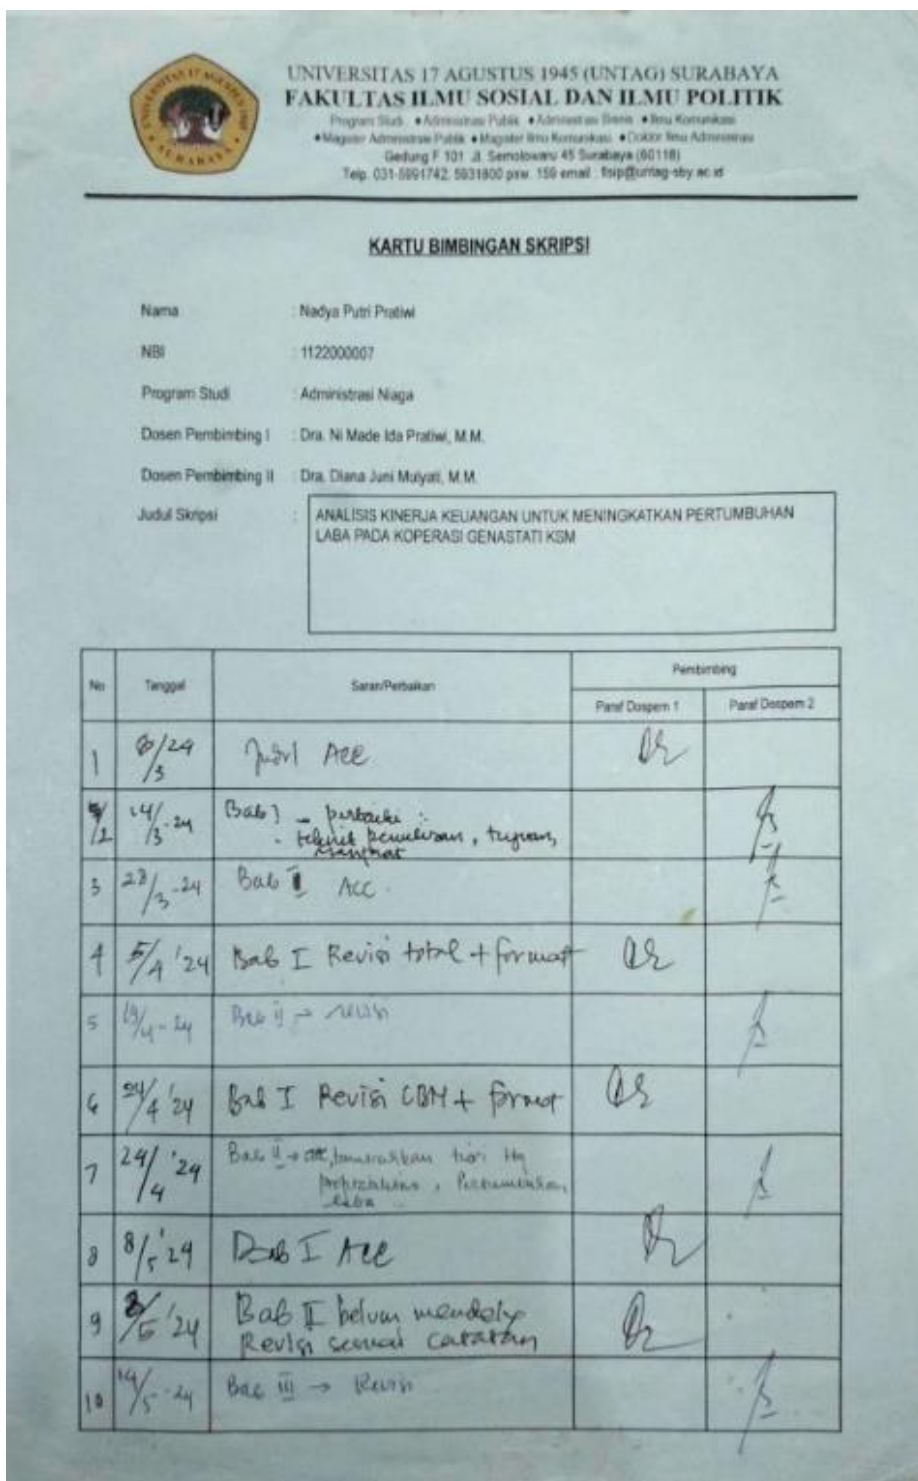 UNIVERSITAS 17 AGUSTUS 1945 (UNTAG) SURABAYA
FAKULTAS ILMU SOSIAL DAN ILMU POLITIK
Program Studi ● Administrasi Publik ● Administrasi Bisnis ● Ilmu Komunikasi
● Magister Administrasi Publik ● Magister Ilmu Komunikasi ● Doktor Ilmu Administrasi
Gedung F 101 Jl. Semolowaru 45 Surabaya (60118)
Telp. 031-5991742, 5931800 psw. 159 email : fisip@untag-sby.ac.id
KARTU BIMBINGAN SKRIPSI
Nama : Nadya Putri Pratiwi
NBI : 1122000007
Program Studi : Administrasi Niaga
Dosen Pembimbing I : Dra. Ni Made Ida Pratiwi, M.M.
Dosen Pembimbing II : Dra. Diana Juni Mulyati, M.M.
Judul Skripsi : ANALISIS KINERJA KEUANGAN UNTUK MENINGKATKAN PERTUMBUHAN
LABA PADA KOPERASI GENASTATI KSM
No Tanggal Saran/Perbaikan Pembimbing
Paraf Dospem 1 Paraf Dospem 2
1 Judul Acc
2 14/3-24 Bab I - perbaiki :
- teknik penulisan, tujuan,
manfaat
3 Bab I ACC.
4 5/4 '24 Bab I Revisi total + format
5 19/4-24 Bab II → revisi
6 24/4 '24 Bab I Revisi LBM + format
7 24/4 '24 Bab II → tambahkan teori ttg
Pertumbuhan
laba
8 8/5 '24 Bab I Acc
9 8/5 '24 Bab II belum
Revisi sesuai catatan
10 14/5-24 Bab III → Revisi